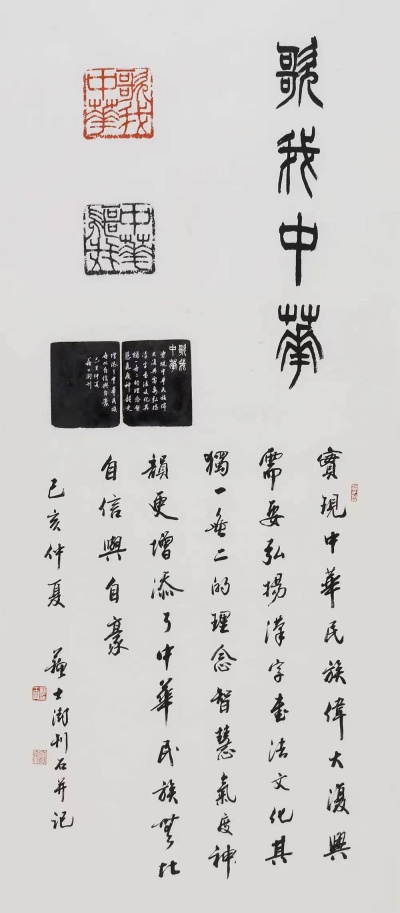 歌我中華
歌我
中華
實現中華民族偉大復興
需要弘揚漢字書法文化其
獨一無二的理念智慧氣度神
韻更增添了中華民族無比
自信與自豪
己亥仲夏 蘇士澍刊石并記